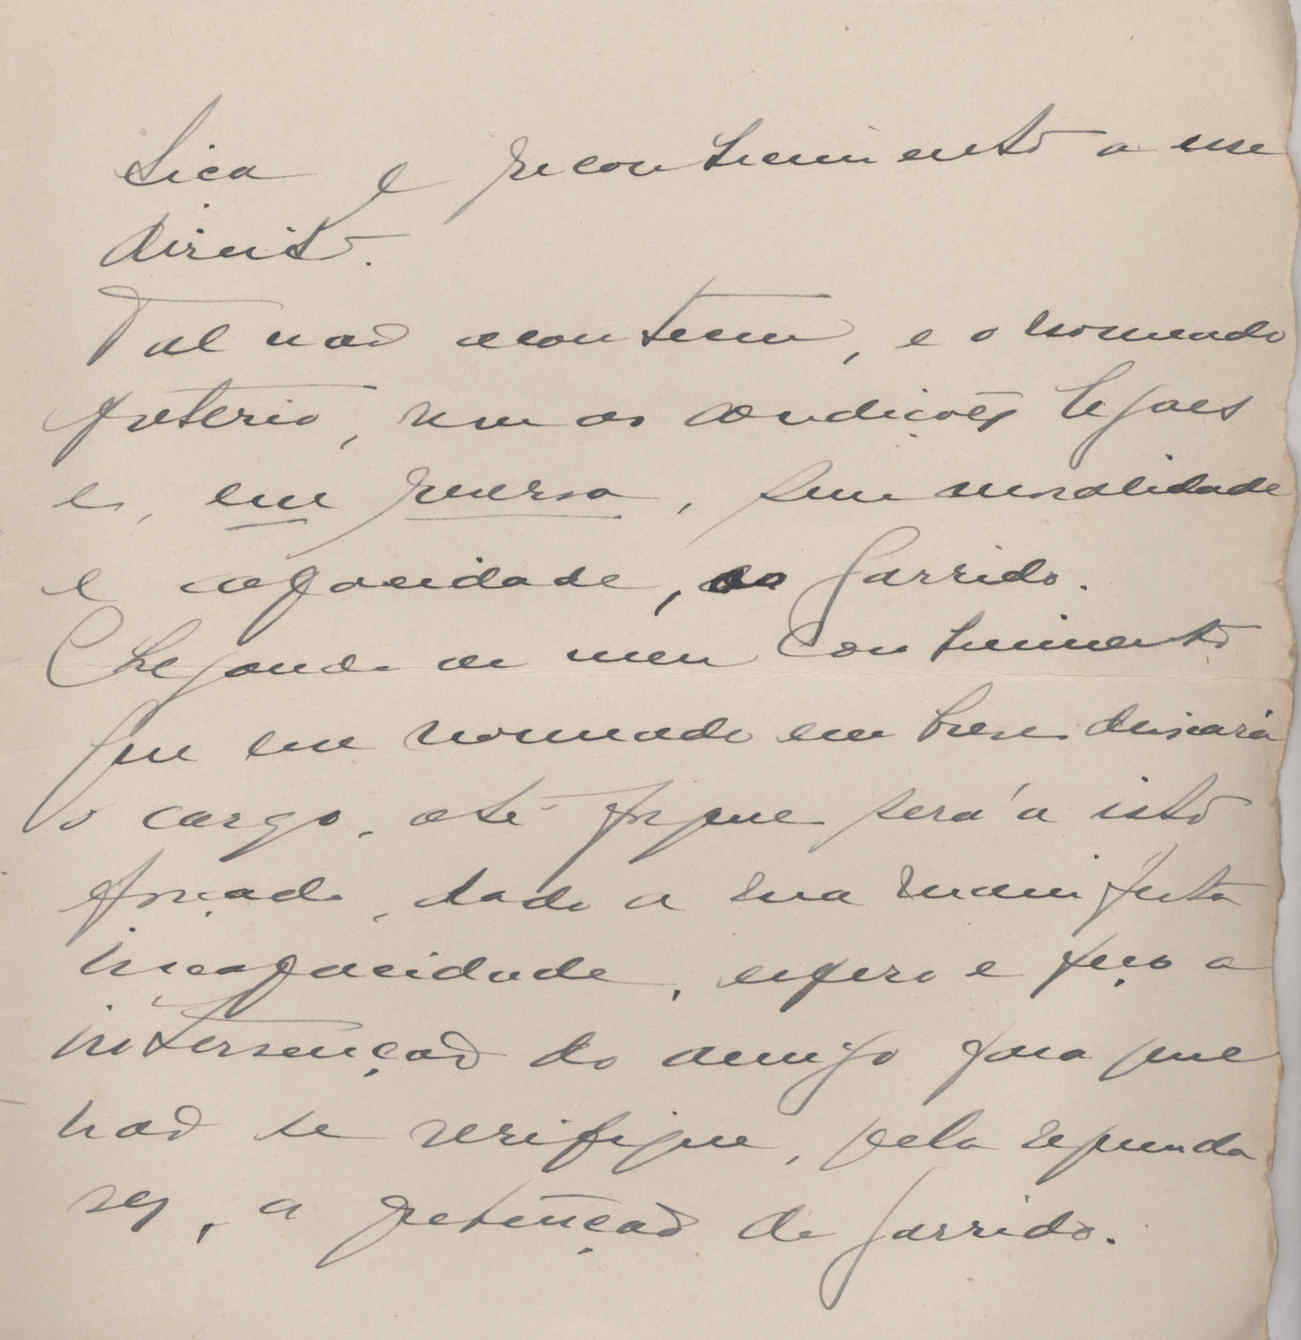 tiça e reconhecimento a um
direito.
Tal não aconteceu, e o nomeado
preterio, sem as condições legaes
e, em guerra, sem moralidade
e capacidade, ao Garrido.
Chegando ao meu conhecimento
que em nomeado em breve deixará
o cargo, até porque será a isto
forçado, dado a sua manifesta
incapacidade, espero e peço a
intervenção do amigo para que
não se verifique, pela segunda
vez, a preterição de Garrido.